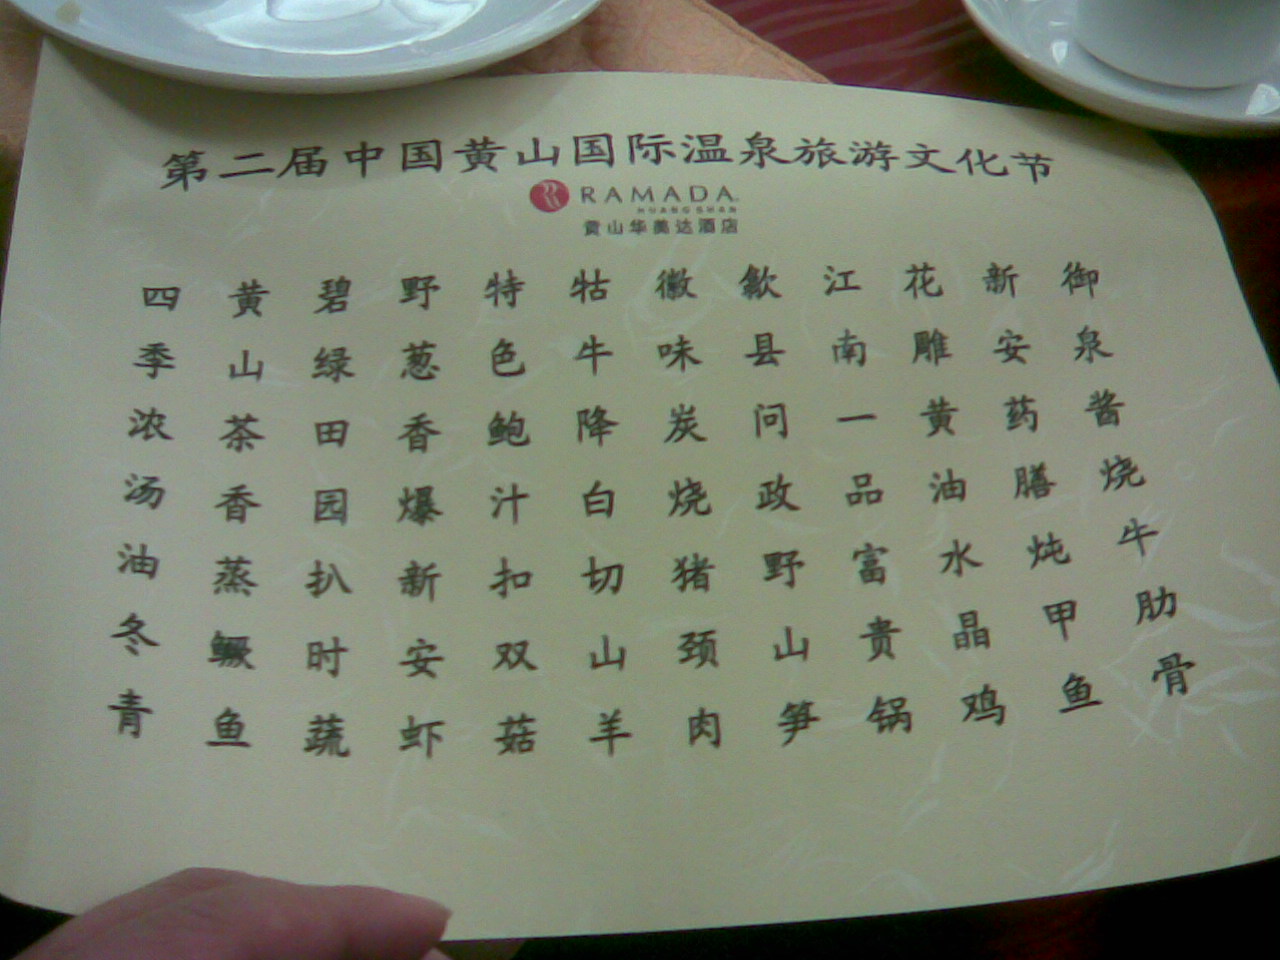 第二届中国黄山国际温泉旅游文化节
RAMADA
HUANG SHAN
黄山华美达酒店
御泉酱烧牛肋骨
新安药膳炖甲鱼
花雕黄油水晶鸡
江南一品富贵锅
歙县问政野山笋
徽味炭烧猪颈肉
牯牛降白切山羊
特色鲍汁扣双菇
野葱香爆新安虾
碧绿田园扒时蔬
黄山茶香蒸鳜鱼
四季浓汤油冬青